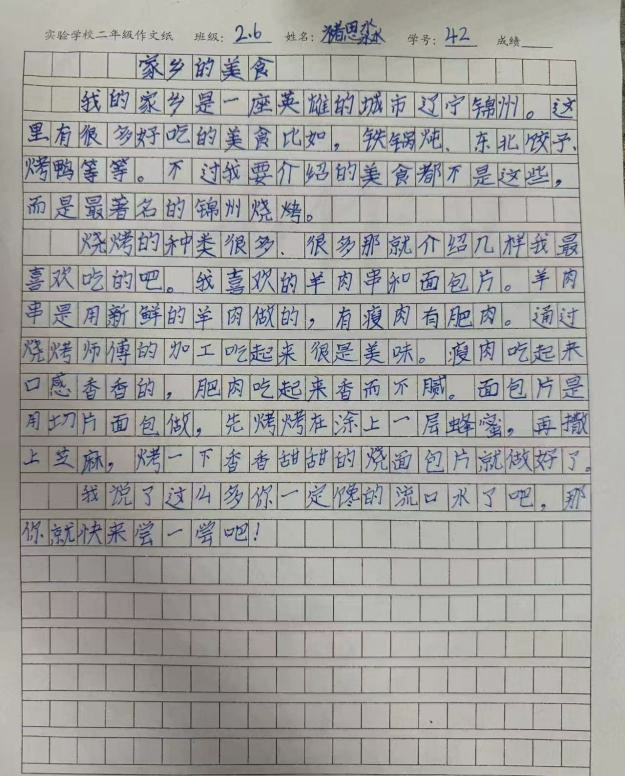 实验学校二年级作文纸 班级：2.6 姓名：猪思淼 学号：42 成绩
家乡的美食
我的家乡是一座英雄的城市辽宁锦州。这
里有很多好吃的美食比如，铁锅炖、东北饺子、
烤鸭等等。不过我要介绍的美食都不是这些，
而是最著名的锦州烧烤。
烧烤的种类很多、很多那就介绍几样我最
喜欢吃的吧。我喜欢的羊肉串和面包片。羊肉
串是用新鲜的羊肉做的，有瘦肉有肥肉。通过
烧烤师傅的加工吃起来很是美味。瘦肉吃起来
口感香香的，肥肉吃起来香而不腻。面包片是
用切片面包做，先烤烤在涂上一层蜂蜜，再撒
上芝麻，烤一下香香甜甜的烧面包片就做好了。
我说了这么多你一定馋的流口水了吧，那
你就快来尝一尝吧！